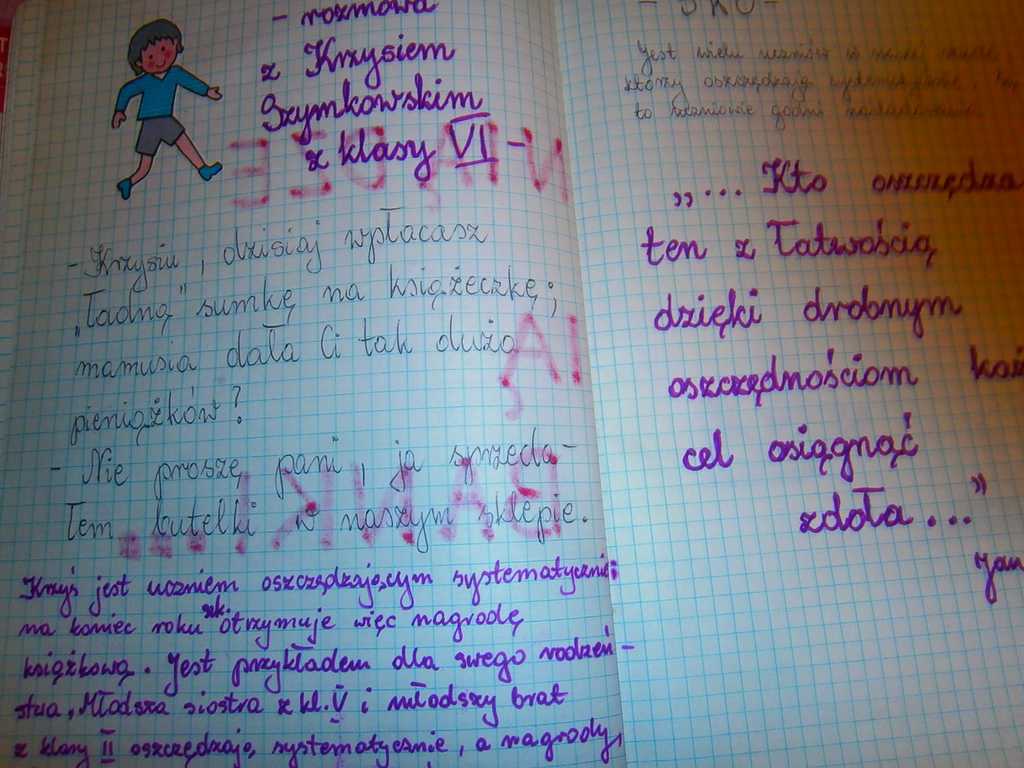 - rozmowa
z Krzysiem
Szymkowskim
z klasy VI -
- Krzysiu, dzisiaj wpłacasz
„ładną" sumkę na książeczkę;
mamusia dała Ci tak dużo
pieniążków?
- Nie proszę pani, ja sprzeda-
łem butelki w naszym sklepie.
Krzyś jest uczniem oszczędzającym systematycznie;
na koniec roku szk. otrzymuje więc nagrodę
książkową. Jest przykładem dla swego rodzeń-
stwa, Młodsza siostra z kl. V i młodszy brat
z klasy II oszczędzają systematycznie, a nagrody,
- SKO -
Jest wielu uczniów w naszej
którzy oszczędzają systematycznie.
to uczniowie godni naśladowania.
„... Kto oszczędza
ten z łatwością
dzięki drobnym
oszczędnościom
cel osiągnąć
zdoła..."
Jan